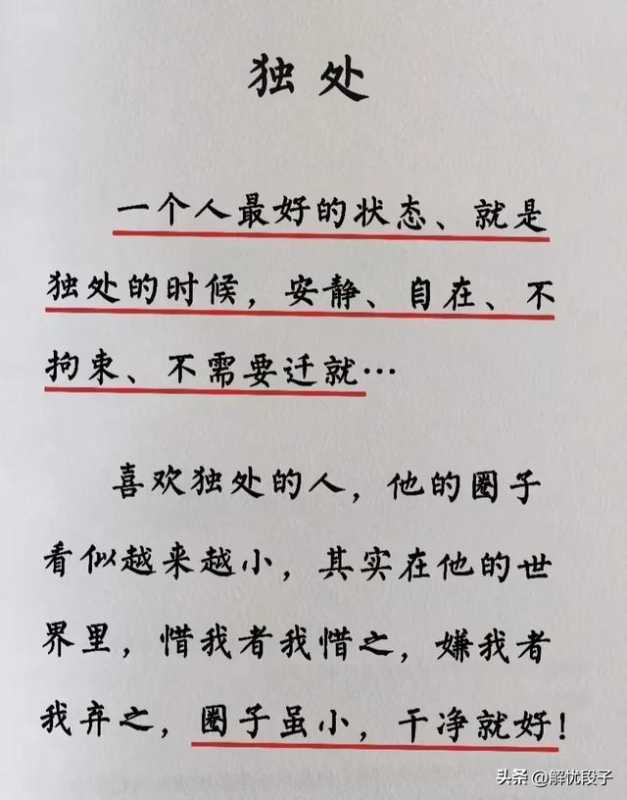 独处
一个人最好的状态、就是
独处的时候，安静、自在、不
拘束、不需要迁就…
喜欢独处的人，他的圈子
看似越来越小，其实在他的世
界里，惜我者我惜之，嫌我者
我弃之，圈子虽小，干净就好！
头条 @解忧段子